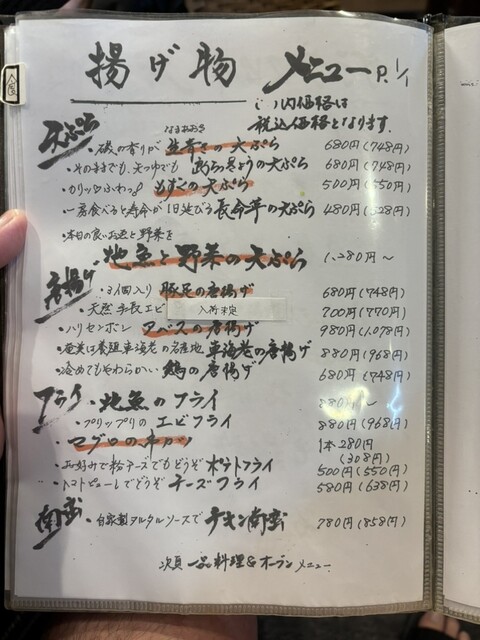 揚げ物 メニュー P.1/1
( )内価格は
税込価格となります。
天ぷら
・磯の香りが 生青さの天ぷら 680円(748円)
・そのままでも、天つゆでも 島らっきょうの天ぷら 680円(748円)
・カリッ、ふわっ もずくの天ぷら 500円(550円)
・一房食べると寿命が1日延びる 長命草の天ぷら 480円(528円)
・本日の良いお魚と野菜を
地魚と野菜の天ぷら 1,280円〜
唐揚げ
・3個入り 豚足の唐揚げ 680円(748円)
・天然 手長エビ 入荷未定 700円(770円)
・ハリセンボン アバスの唐揚げ 980円(1,078円)
・奄美は養殖車海老の名産地 車海老の唐揚げ 880円(968円)
・冷めてもやわらかい 鶏の唐揚げ 680円(748円)
フライ
・地魚のフライ 880円〜
・プリップリの エビフライ 880円(968円)
・マグロの串カツ 1本280円
(308円)
・お好みで粉チーズでもどうぞ ポテトフライ 500円(550円)
・トマトピューレでどうぞ チーズフライ 580円(638円)
南蛮
・自家製タルタルソースで チキン南蛮 780円(858円)
次頁 一品料理&オープンメニュー